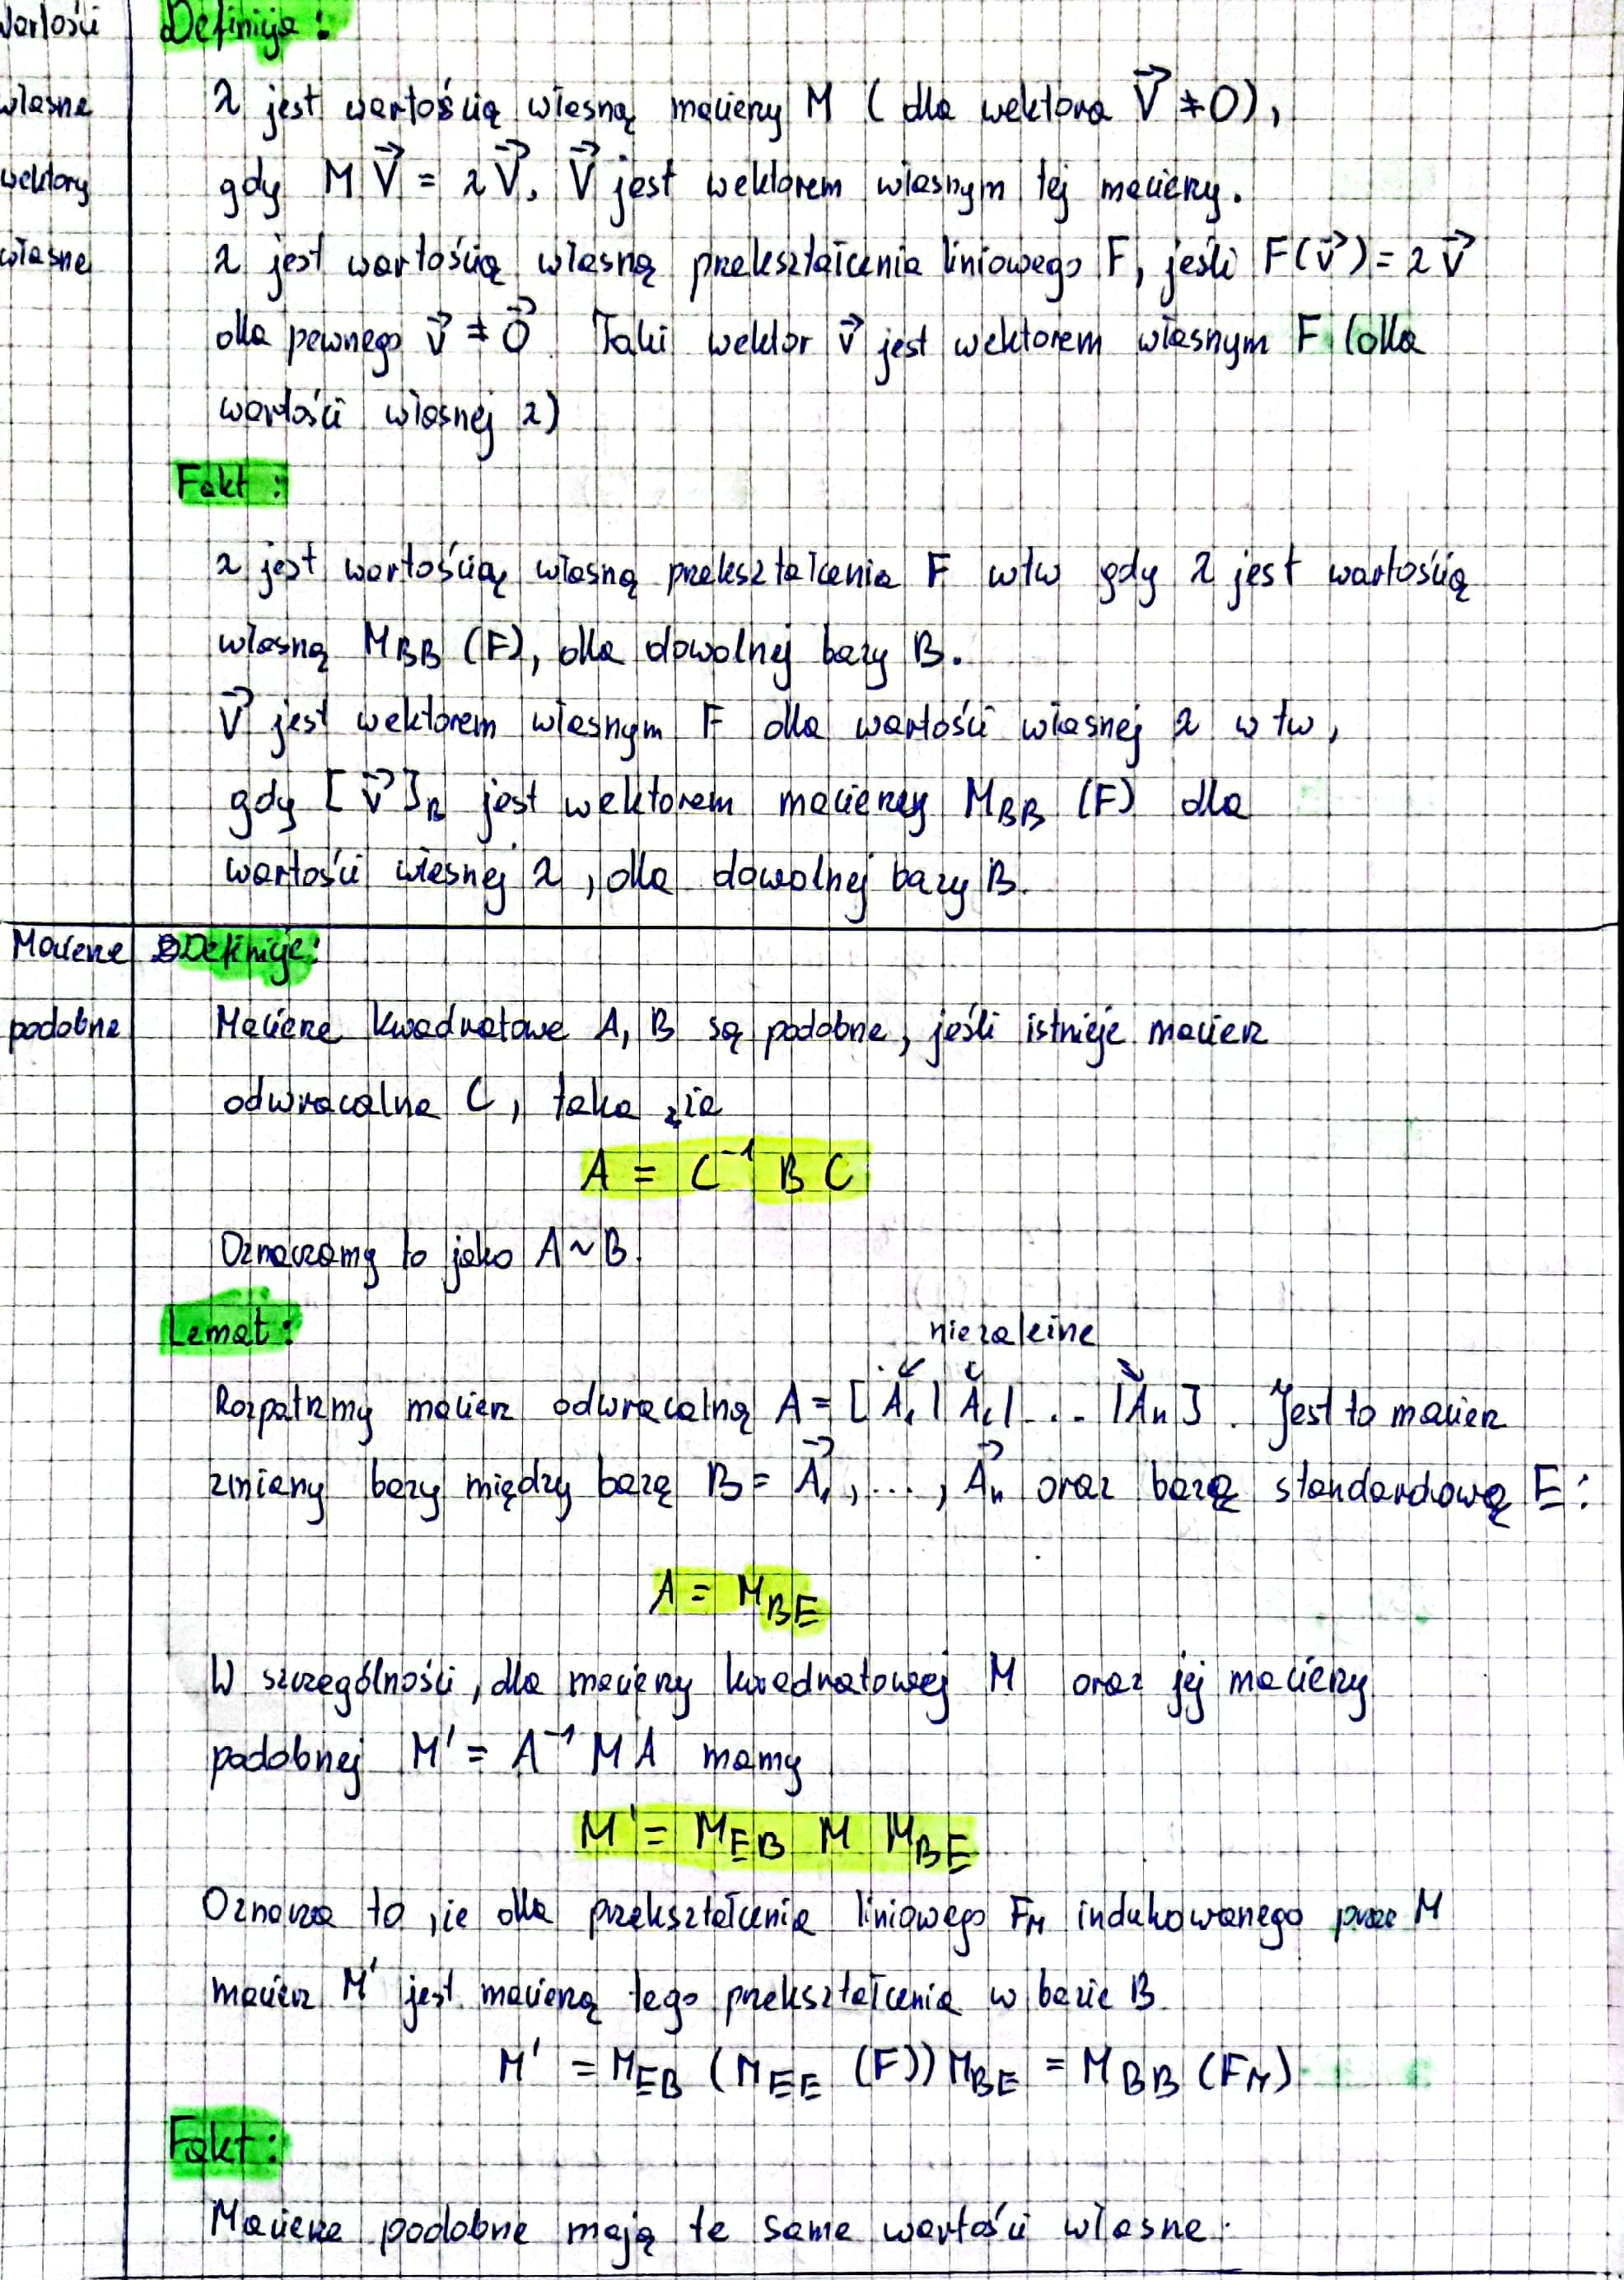 Wartości
Definicja:
własne
λ jest wartością własną macierzy M (dla wektora V⃗ ≠ 0),
wektory
gdy M V⃗ = λ V⃗. V⃗ jest wektorem własnym tej macierzy.
własne
λ jest wartością własną przekształcenia liniowego F, jeśli F(v⃗) = λ v⃗
dla pewnego v⃗ ≠ 0⃗. Taki wektor v⃗ jest wektorem własnym F (dla
wartości własnej λ)
Fakt:
λ jest wartością własną przekształcenia F wtw gdy λ jest wartością
własną M_BB (F), dla dowolnej bazy B.
V⃗ jest wektorem własnym F dla wartości własnej λ wtw,
gdy [v⃗]_B jest wektorem macierzy M_BB (F) dla
wartości własnej λ, dla dowolnej bazy B.
Macierze
Definicje:
podobne
Macierze kwadratowe A, B są podobne, jeśli istnieje macierz
odwracalna C, taka że
A = C⁻¹ B C
Oznaczamy to jako A ~ B.
Lemat:
niezależne
Rozpatrzmy macierz odwracalną A = [A₁ | A₂ | ... | Aₙ]. Jest to macierz
zmiany bazy między bazą B = A⃗₁, ..., A⃗ₙ oraz bazą standardową E:
A = M_BE
W szczególności, dla macierzy kwadratowej M oraz jej macierzy
podobnej M' = A⁻¹ M A mamy
M' = M_EB M M_BE
Oznacza to, że dla przekształcenia liniowego F_M indukowanego przez M
macierz M' jest macierzą tego przekształcenia w bazie B.
M' = M_EB (M_EE (F)) M_BE = M_BB (F_M)
Fakt:
Macierze podobne mają te same wartości własne.